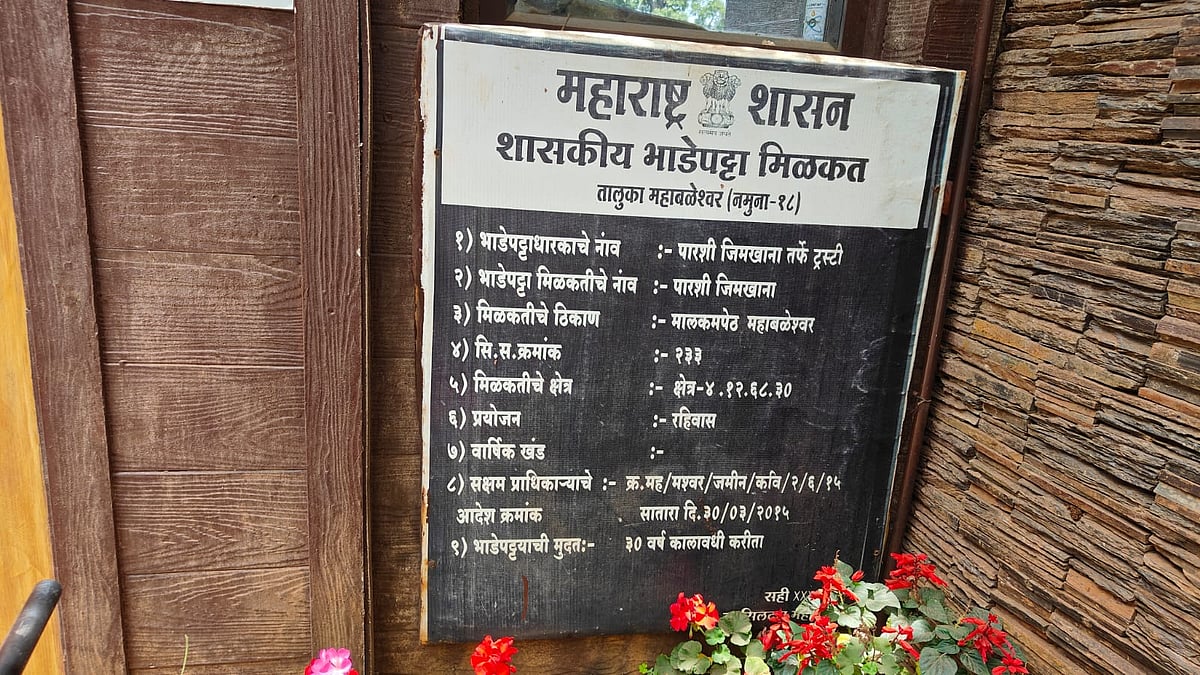 महाराष्ट्र शासन
सत्यमेव जयते
शासकीय भाडेपट्टा मिळकत
तालुका महाबळेश्वर (नमुना-१८)
१) भाडेपट्टाधारकाचे नांव :- पारशी जिमखाना तर्फे ट्रस्टी
२) भाडेपट्टा मिळकतीचे नांव :- पारशी जिमखाना
३) मिळकतीचे ठिकाण :- मालकमपेठ महाबळेश्वर
४) सि.स.क्रमांक :- २३३
५) मिळकतीचे क्षेत्र :- क्षेत्र-४.१२.६८.३०
६) प्रयोजन :- रहिवास
७) वार्षिक खंड :-
८) सक्षम प्राधिकाऱ्याचे :- क्र.मह/मश्वर/जमीन/कवि/२/६/१५
आदेश क्रमांक सातारा दि.३०/०३/२०१५
९) भाडेपट्टयाची मुदत:- ३० वर्ष कालावधी करीता
सही